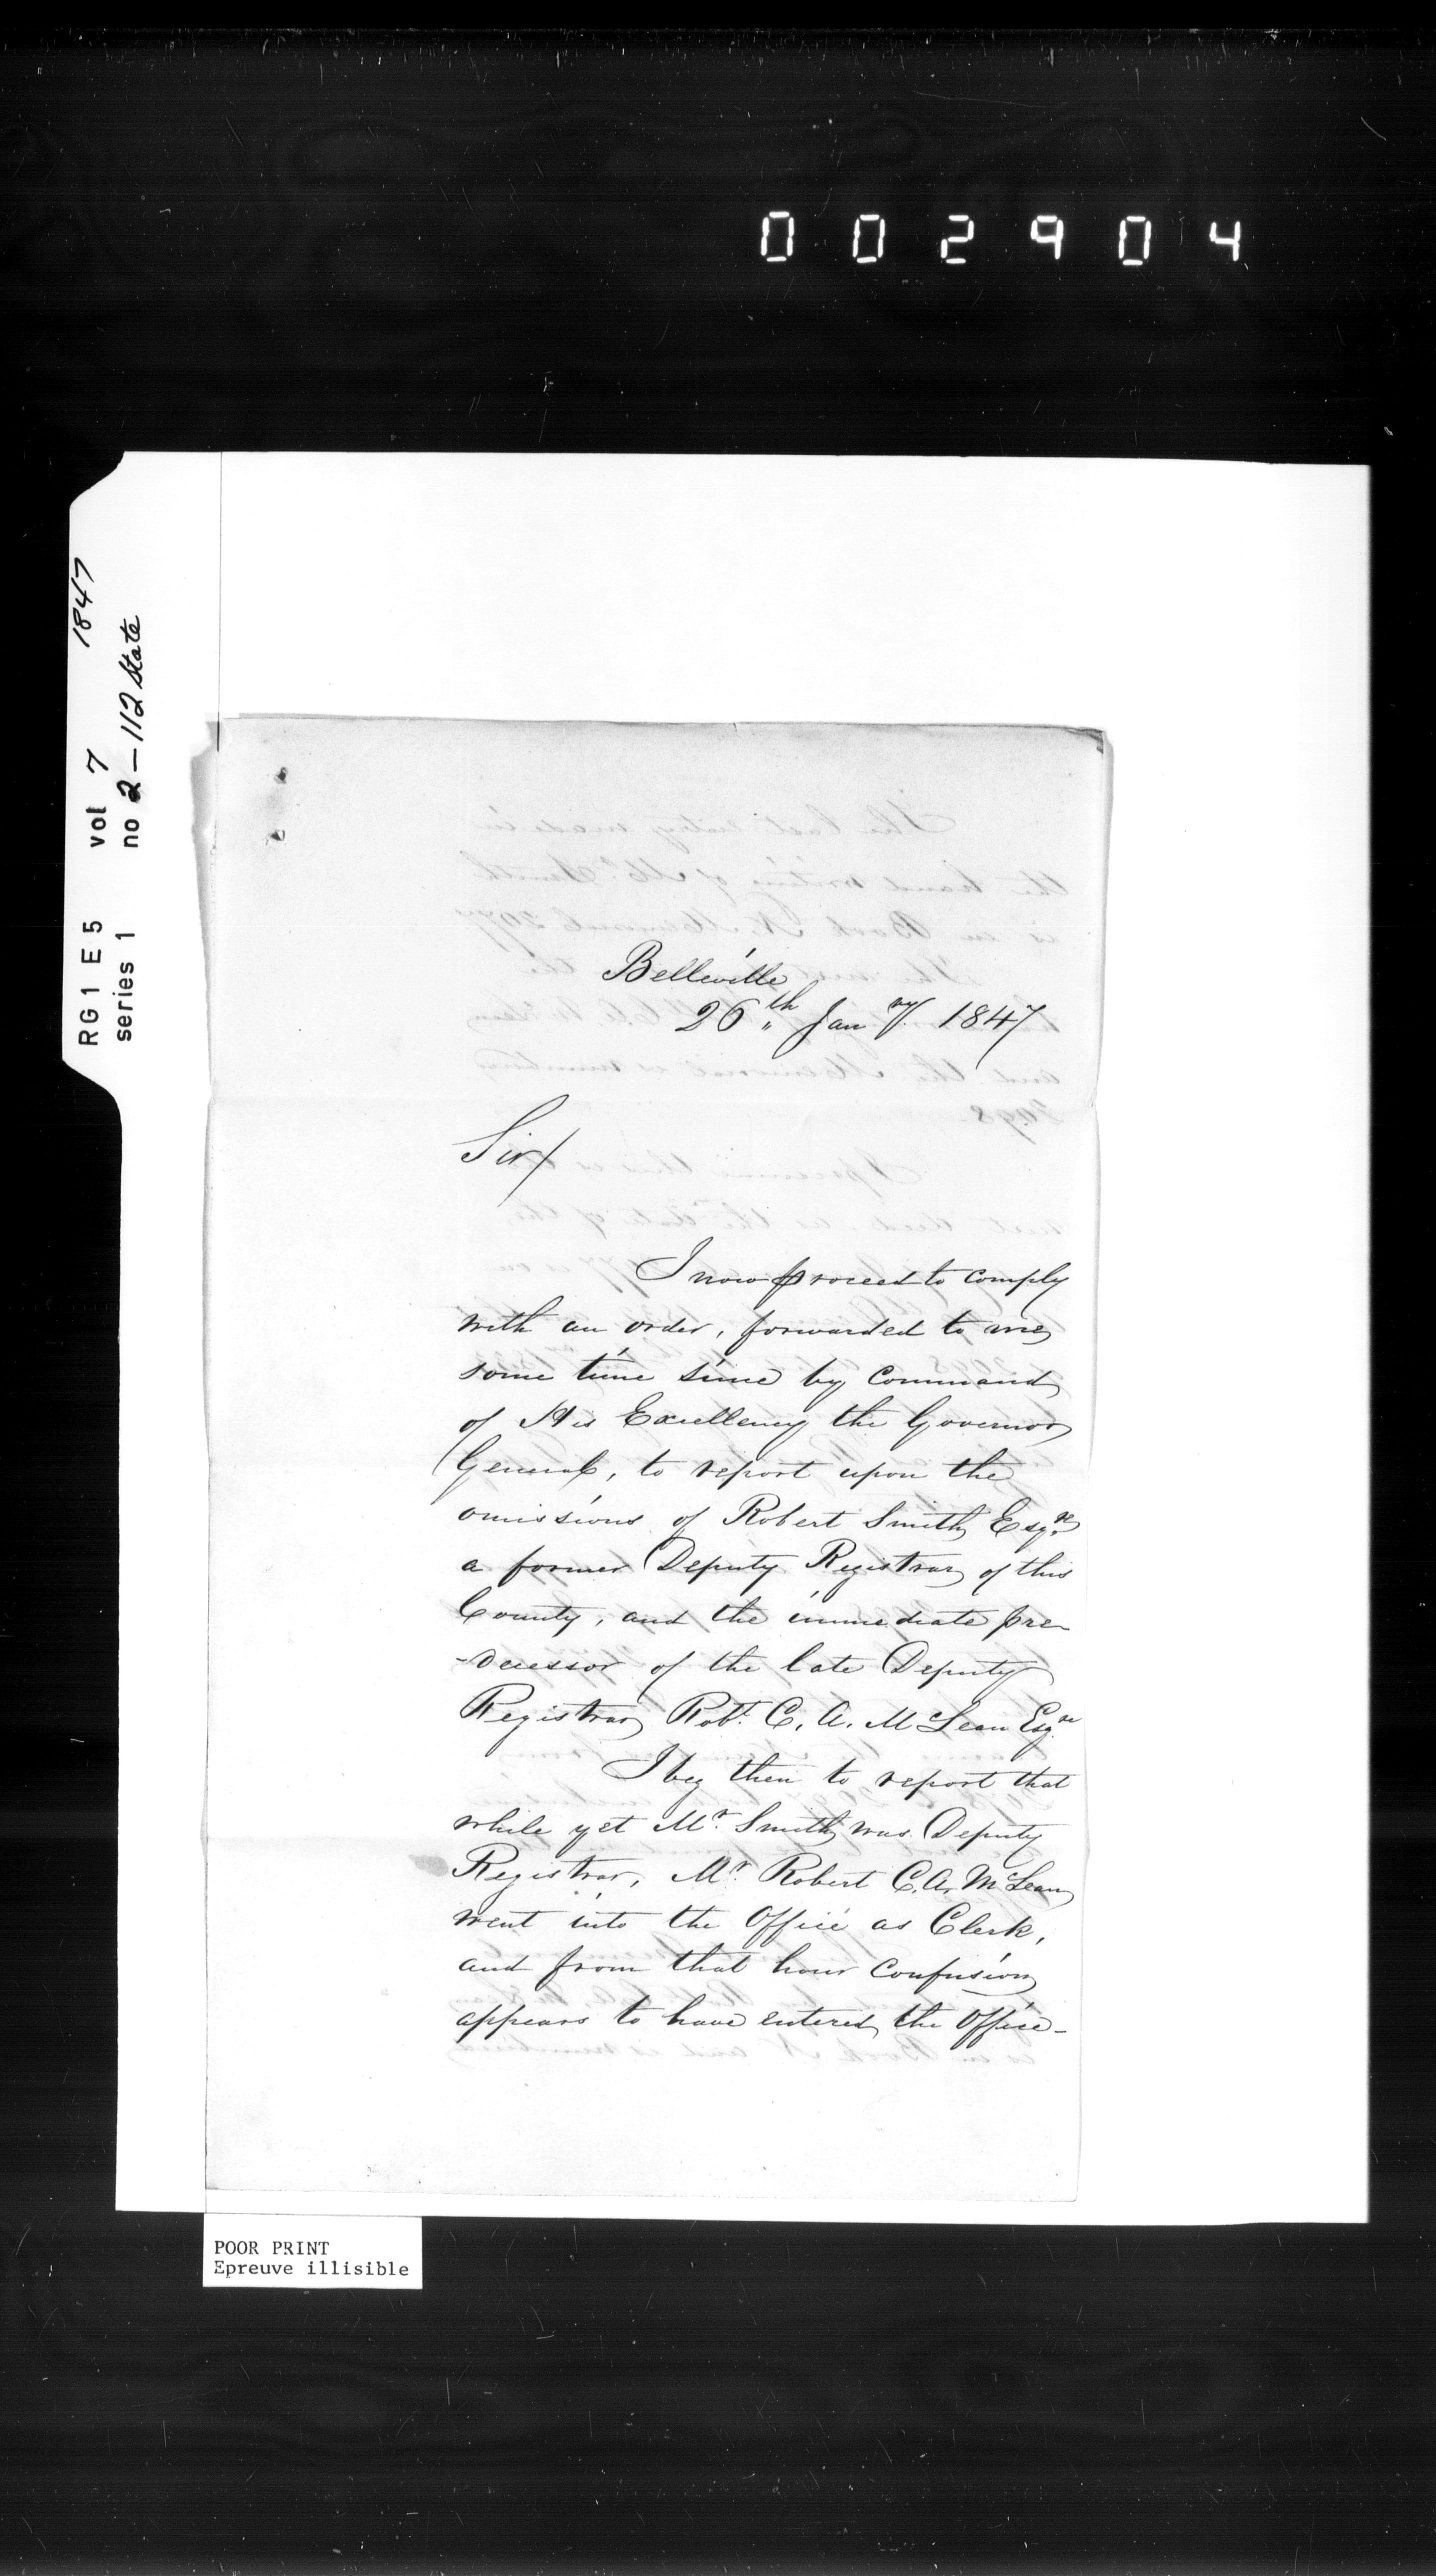 002904
RG1 E5 vol 7 1847
series 1 no 2-112 State
Belleville
26th Jany. 1847
Sir/
I now proceed to comply
with an order, forwarded to me
some time since by command
of His Excellency the Governor
General, to report upon the
omissions of Robert Smith Esqre
a former Deputy Registrar of this
County, and the immediate pre
-decessor of the late Deputy
Registrar Robt. C. A. McLean Esqre
I beg then to report that
while yet Mr. Smith was Deputy
Registrar, Mr Robert C. A. McLean
went into the Office as Clerk,
and from that hour confusion
appears to have entered the Office-
POOR PRINT
Epreuve illisible